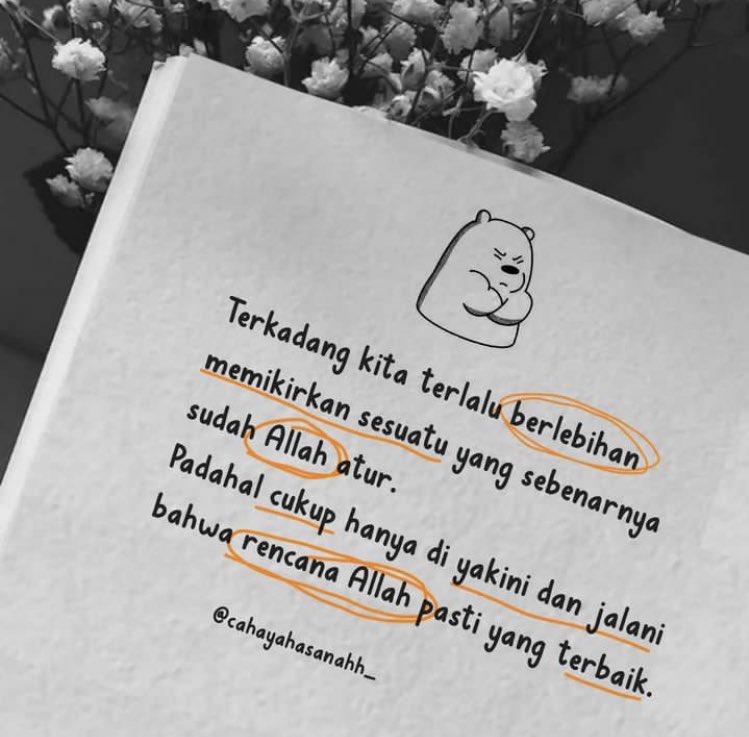 Terkadang kita terlalu berlebihan
memikirkan sesuatu yang sebenarnya
sudah Allah atur.
Padahal cukup hanya di yakini dan jalani
bahwa rencana Allah pasti yang terbaik.
@cahayahasanahh_